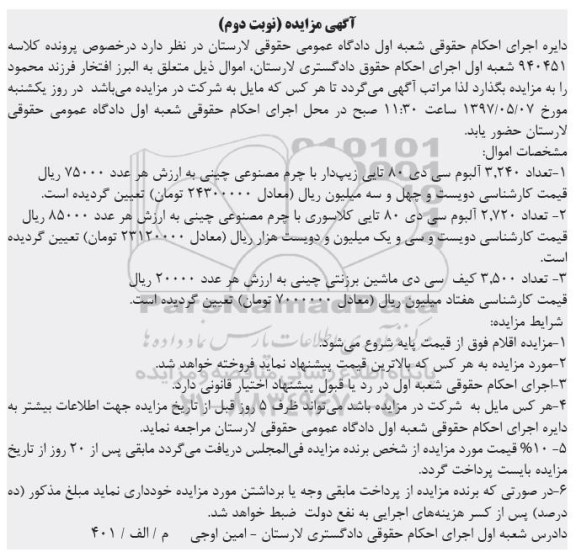 آگهی مزایده (نوبت دوم)
دایره اجرای احکام حقوقی شعبه اول دادگاه عمومی حقوقی لارستان در نظر دارد درخصوص پرونده کلاسه
۹۴۰۴۵۱ شعبه اول اجرای احکام حقوق دادگستری لارستان، اموال ذیل متعلق به البرز افتخار فرزند محمود
را به مزایده بگذارد لذا مراتب آگهی می‌گردد تا هر کس که مایل به شرکت در مزایده می‌باشد در روز یکشنبه
مورخ ۱۳۹۷/۰۵/۰۷ ساعت ۱۱:۳۰ صبح در محل اجرای احکام حقوقی شعبه اول دادگاه عمومی حقوقی
لارستان حضور یابد.
مشخصات اموال:
۱-تعداد ۳,۲۴۰ آلبوم سی دی ۸۰ تایی زیپ‌دار با چرم مصنوعی چینی به ارزش هر عدد ۷۵۰۰۰ ریال
قیمت کارشناسی دویست و چهل و سه میلیون ریال (معادل ۲۴۳۰۰۰۰۰ تومان) تعیین گردیده است.
۲- تعداد ۲,۷۲۰ آلبوم سی دی ۸۰ تایی کلاسوری با چرم مصنوعی چینی به ارزش هر عدد ۸۵۰۰۰ ریال
قیمت کارشناسی دویست و سی و یک میلیون و دویست هزار ریال (معادل ۲۳۱۲۰۰۰۰ تومان) تعیین گردیده
است.
۳- تعداد ۳,۵۰۰ کیف سی دی ماشین برزنتی چینی به ارزش هر عدد ۲۰۰۰۰ ریال
قیمت کارشناسی هفتاد میلیون ریال (معادل ۷۰۰۰۰۰۰ تومان) تعیین گردیده است.
شرایط مزایده:
۱-مزایده اقلام فوق از قیمت پایه شروع می‌شود.
۲-مورد مزایده به هر کس که بالاترین قیمت پیشنهاد نماید فروخته خواهد شد.
۳-اجرای احکام حقوقی شعبه اول در رد یا قبول پیشنهاد اختیار قانونی دارد.
۴-هر کس مایل به شرکت در مزایده باشد می‌تواند ظرف ۵ روز قبل از تاریخ مزایده جهت اطلاعات بیشتر به
دایره اجرای احکام حقوقی شعبه اول دادگاه عمومی حقوقی لارستان مراجعه نماید.
۵- ۱۰% قیمت مورد مزایده از شخص برنده مزایده فی‌المجلس دریافت می‌گردد مابقی پس از ۲۰ روز از تاریخ
مزایده بایست پرداخت گردد.
۶-در صورتی که برنده مزایده از پرداخت مابقی وجه یا برداشتن مورد مزایده خودداری نماید مبلغ مذکور (ده
درصد) پس از کسر هزینه‌های اجرایی به نفع دولت ضبط خواهد شد.
دادرس شعبه اول اجرای احکام حقوقی دادگستری لارستان - امین اوجی م / الف / ۴۰۱
ParsNamadData